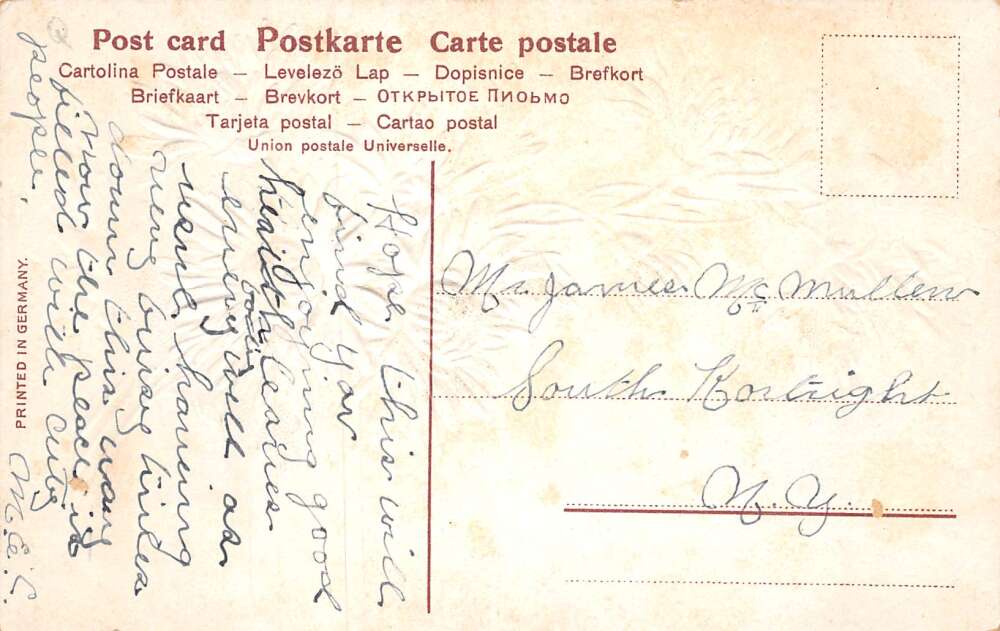 Post card Postkarte Carte postale
Cartolina Postale – Levelezö Lap – Dopisnice – Brefkort
Briefkaart – Brevkort – ОТКРЫТОЕ ПИОЬМО
Tarjeta postal – Cartao postal
Union postale Universelle.
Hope this will
find you
enjoying good
health leaves
every body well as
usual having
very busy times
down this way
now the place is
filled with city
people.
M.E.C.
Mr James Mc Mullen
South Kortright
N.Y.
PRINTED IN GERMANY.